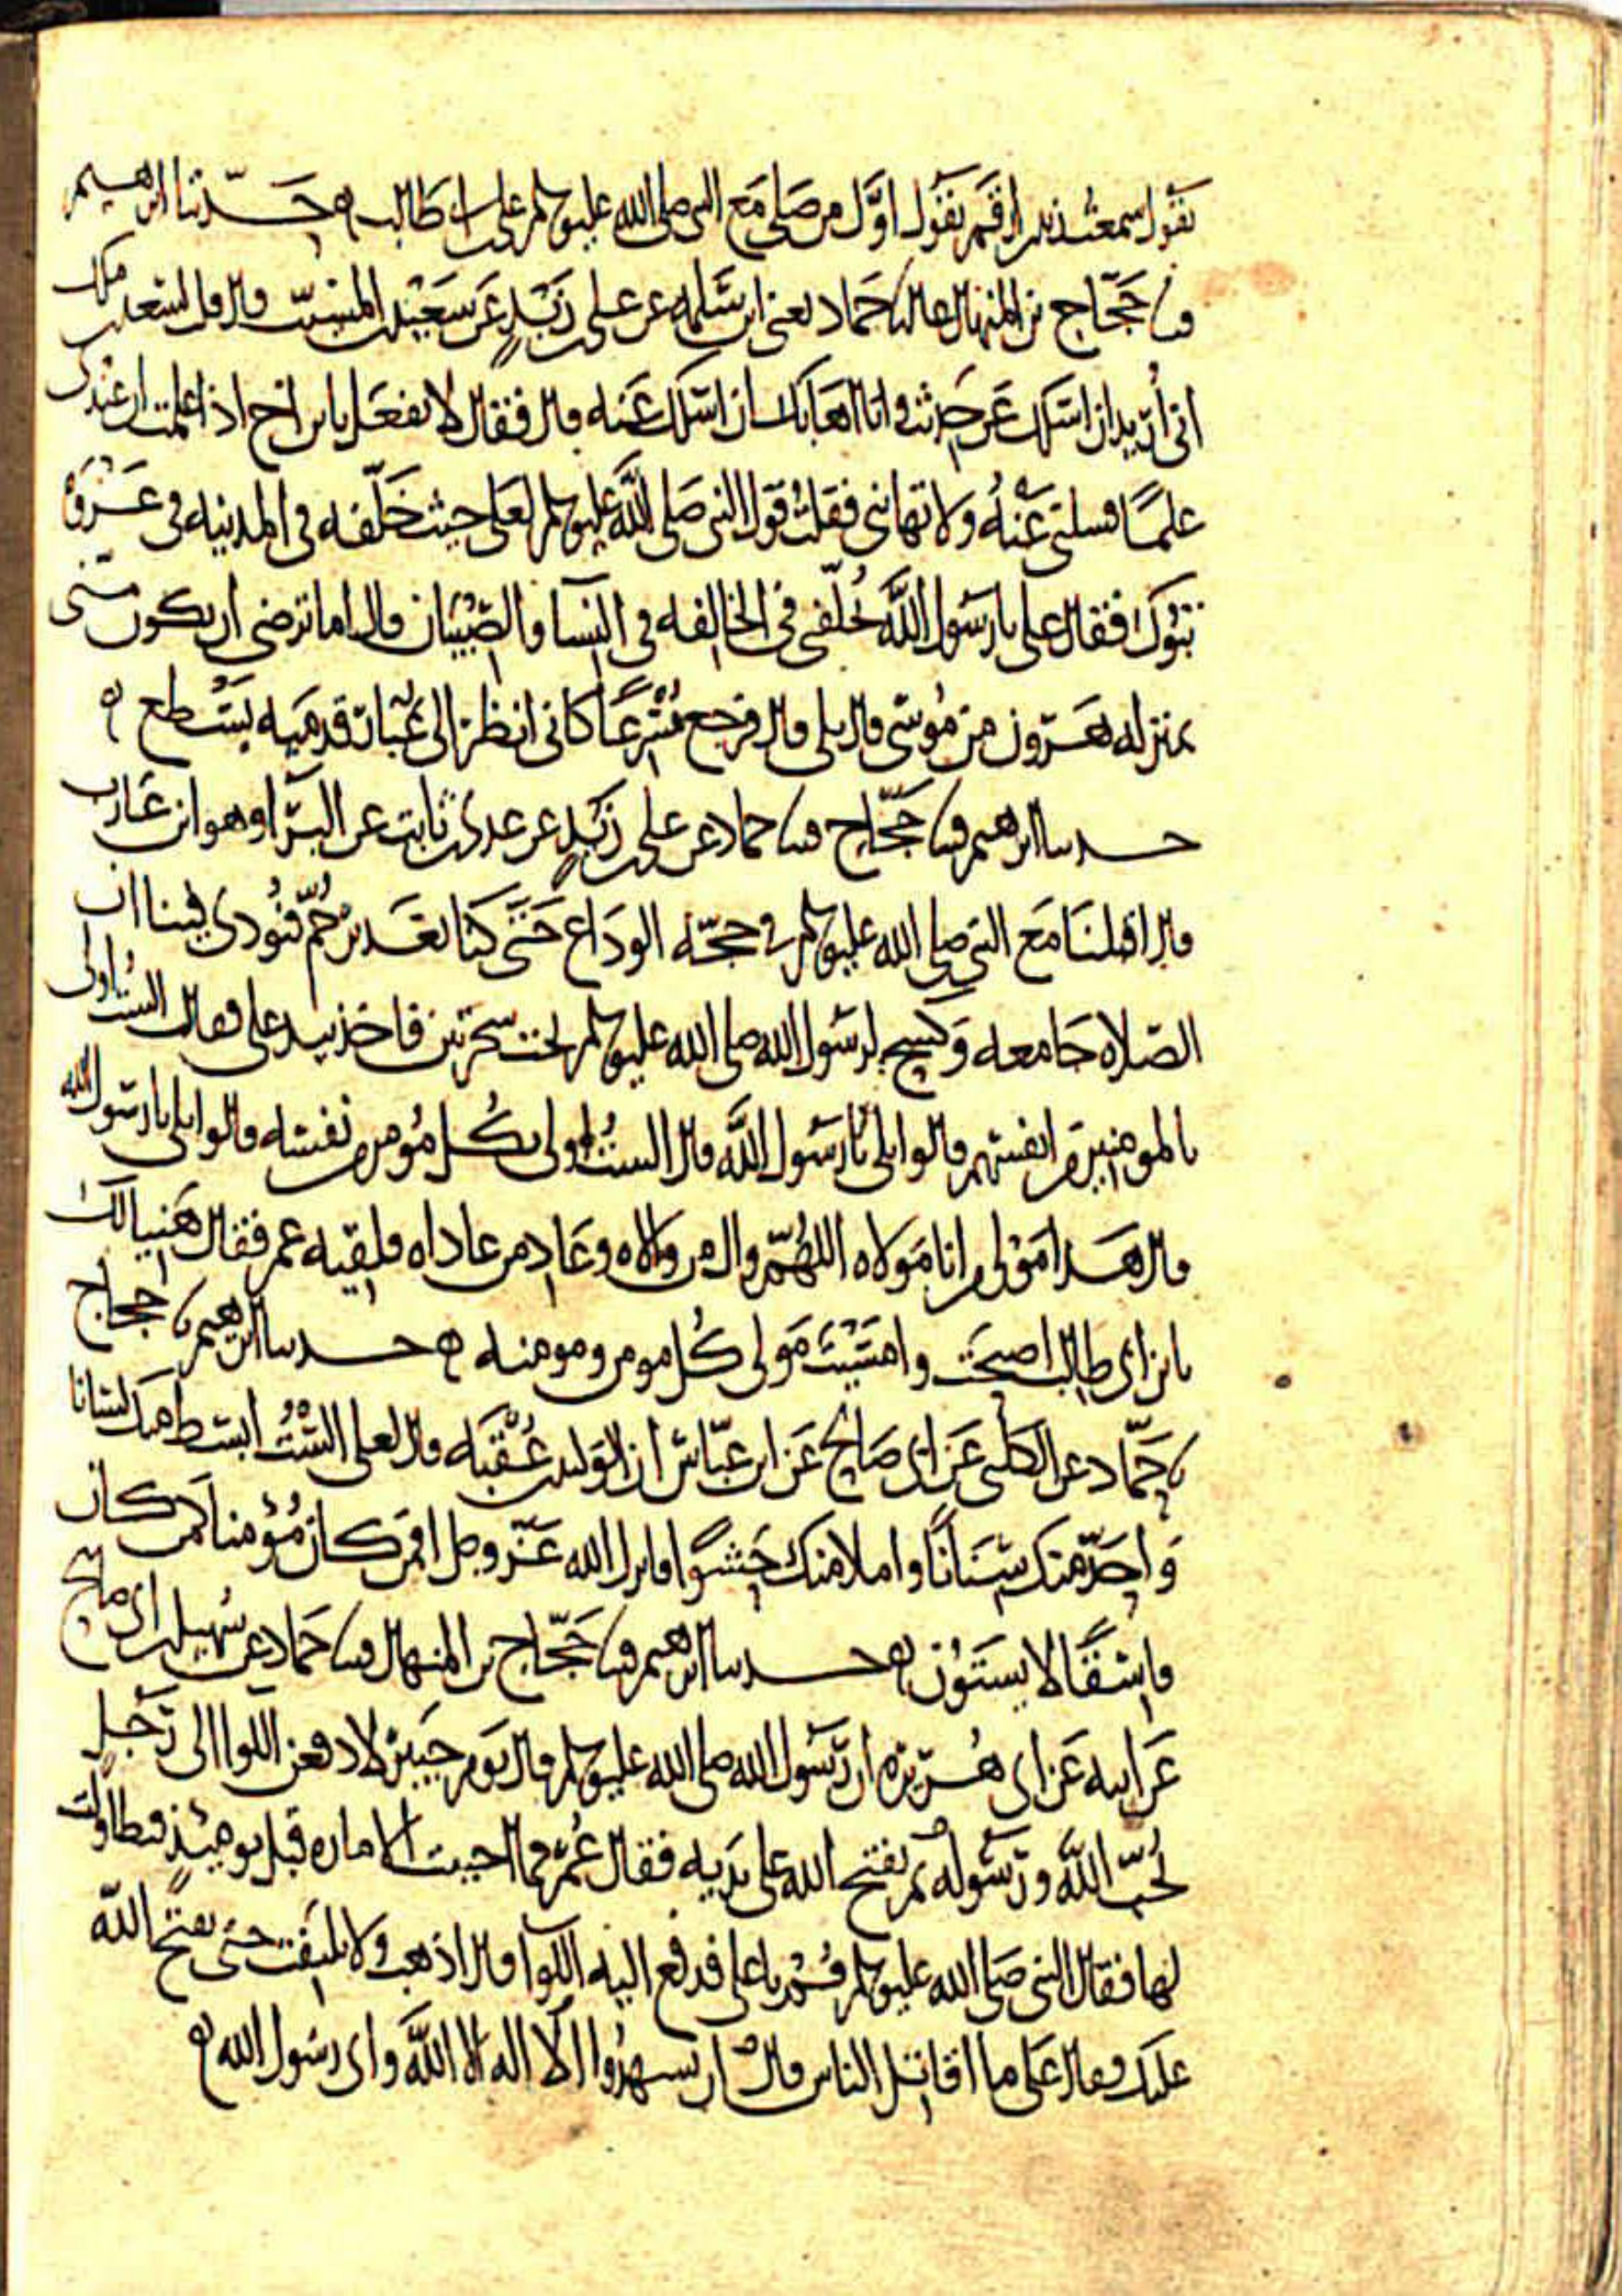 يقول سمعت زيد بن ارقم يقول اول من صلى مع النبي صلى الله عليه وسلم علي بن ابي طالب ه حدثنا ابرهيم
قثنا حجاج بن المنهال قال نا حماد يعني ابن سلمه عن علي بن زيد عن سعيد بن المسيب قال قلت لسعد بن ملك
اني اريد ان اسلك عن حديث وانا اهابك ان اسلك عنه قال فقال لا تفعل يا بن اخي اذا علمت ان عندي
علما فسلني عنه ولا تهابني فقلت قول النبي صلى الله عليه وسلم لعلي حيث خلفه في المدينه في غزوة
تبوك فقال علي يا رسول الله تخلفني في الخالفه في النسا والصبيان قال اما ترضى ان تكون مني
بمنزله هرون من موسى قال بلى قال فرجع مسرعا كاني انظر الى غبار قدميه يسطع ه
حدثنا ابرهيم قثنا حجاج قثنا حماد عن علي بن زيد عن عدي بن ثابت عن البرا وهو ابن عازب
قال اقبلنا مع النبي صلى الله عليه وسلم في حجه الوداع حتى كنا بغدير خم فنودي فينا ان
الصلاه جامعه وكسح لرسول الله صلى الله عليه وسلم تحت شجرتين فاخذ بيد علي فقال الست اولى
بالمومنين من انفسهم قالوا بلى يا رسول الله قال الست اولى بكل مؤمن من نفسه قالوا بلى يا رسول الله
قال هذا مولى من انا مولاه اللهم وال من والاه وعاد من عاداه فلقيه عمر فقال هنيا لك
يا بن ابي طالب اصبحت وامسيت مولى كل مومن ومومنه ه حدثنا ابرهيم نا حجاج
نا حماد عن الكلبي عن ابي صالح عن ابن عباس ان الوليد بن عقبه قال لعلي الست ابسط منك لسانا
واحد منك سنانا واملا منك حشوا فانزل الله عز وجل افمن كان مؤمنا كمن كان
فاسقا لا يستوون ه حدثنا ابرهيم قثنا حجاج بن المنهال قثنا حماد عن سهيل بن ابي صالح
عن ابيه عن ابي هريره ان رسول الله صلى الله عليه وسلم قال يوم خيبر لادفعن اللوا الى رجل
يحب الله ورسوله ثم يفتح الله على يديه فقال عمر فما احببت الاماره قبل يوميذ فتطاولت
لها فقال النبي صلى الله عليه وسلم قم يا علي فدفع اليه اللوا قال اذهب ولا تلتفت حتى يفتح الله
عليك فقال على ما اقاتل الناس قال ان يشهدوا الا اله الا الله واني رسول الله ه